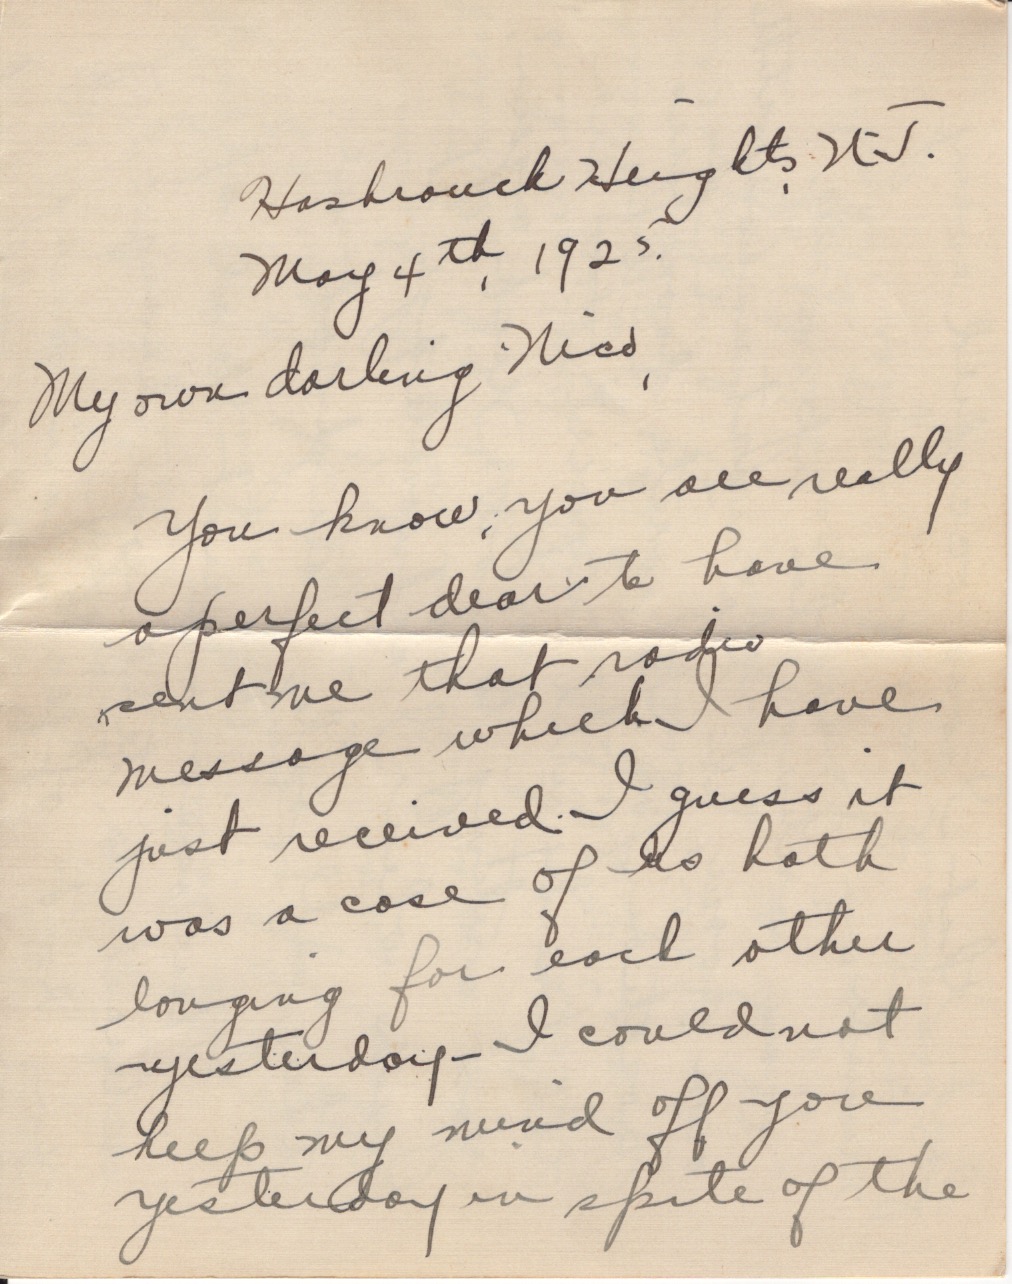 Hasbrouck Heights, N.J.
May 4th, 1925.
My own darling Nico,
You know, you are really
a perfect dear to have
sent me that radio
message which I have
just received. I guess it
was a case of us both
longing for each other
yesterday - I could not
keep my mind off you
yesterday in spite of the